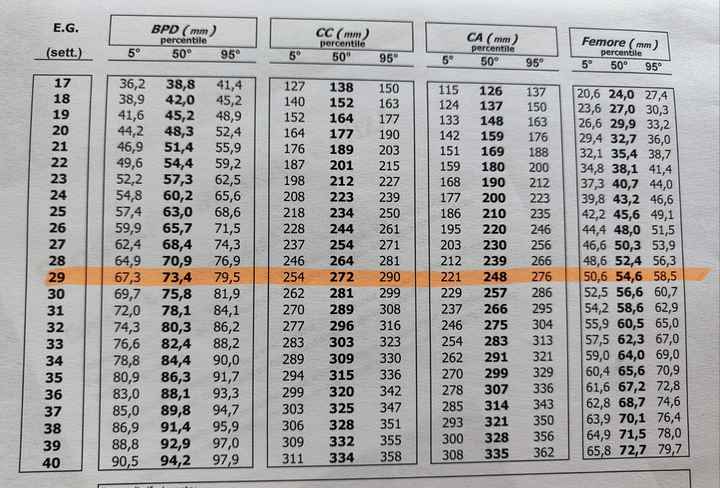 E.G. BPD ( mm ) CC ( mm ) CA ( mm ) Femore ( mm )
percentile percentile percentile percentile
(sett.) 5° 50° 95° 5° 50° 95° 5° 50° 95° 5° 50° 95°
17 36,2 38,8 41,4 127 138 150 115 126 137 20,6 24,0 27,4
18 38,9 42,0 45,2 140 152 163 124 137 150 23,6 27,0 30,3
19 41,6 45,2 48,9 152 164 177 133 148 163 26,6 29,9 33,2
20 44,2 48,3 52,4 164 177 190 142 159 176 29,4 32,7 36,0
21 46,9 51,4 55,9 176 189 203 151 169 188 32,1 35,4 38,7
22 49,6 54,4 59,2 187 201 215 159 180 200 34,8 38,1 41,4
23 52,2 57,3 62,5 198 212 227 168 190 212 37,3 40,7 44,0
24 54,8 60,2 65,6 208 223 239 177 200 223 39,8 43,2 46,6
25 57,4 63,0 68,6 218 234 250 186 210 235 42,2 45,6 49,1
26 59,9 65,7 71,5 228 244 261 195 220 246 44,4 48,0 51,5
27 62,4 68,4 74,3 237 254 271 203 230 256 46,6 50,3 53,9
28 64,9 70,9 76,9 246 264 281 212 239 266 48,6 52,4 56,3
29 67,3 73,4 79,5 254 272 290 221 248 276 50,6 54,6 58,5
30 69,7 75,8 81,9 262 281 299 229 257 286 52,5 56,6 60,7
31 72,0 78,1 84,1 270 289 308 237 266 295 54,2 58,6 62,9
32 74,3 80,3 86,2 277 296 316 246 275 304 55,9 60,5 65,0
33 76,6 82,4 88,2 283 303 323 254 283 313 57,5 62,3 67,0
34 78,8 84,4 90,0 289 309 330 262 291 321 59,0 64,0 69,0
35 80,9 86,3 91,7 294 315 336 270 299 329 60,4 65,6 70,9
36 83,0 88,1 93,3 299 320 342 278 307 336 61,6 67,2 72,8
37 85,0 89,8 94,7 303 325 347 285 314 343 62,8 68,7 74,6
38 86,9 91,4 95,9 306 328 351 293 321 350 63,9 70,1 76,4
39 88,8 92,9 97,0 309 332 355 300 328 356 64,9 71,5 78,0
40 90,5 94,2 97,9 311 334 358 308 335 362 65,8 72,7 79,7